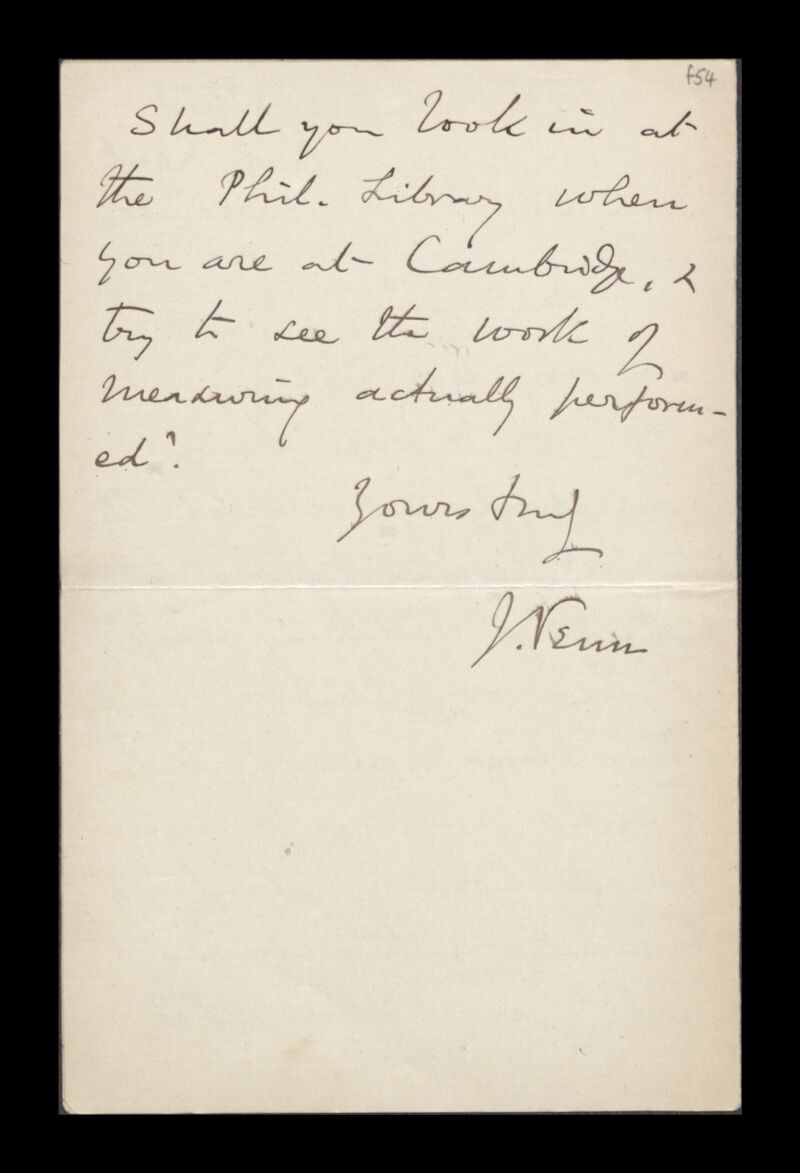 f54
Shall you look in at
the Phil. Library when
you are at Cambridge, &
try to see the work of
measuring actually perform-
ed?
Yours truly
J. Venn